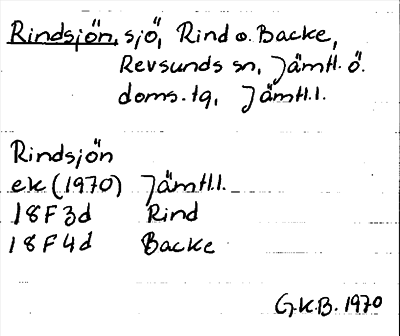 Rindsjön, sjö, Rind o. Backe,
Revsunds sn, Jämtl. ö.
doms. tg, Jämtl.l.
Rindsjön
ek (1970) Jämtl.l.
18F3d Rind
18F4d Backe
G.K.B. 1970